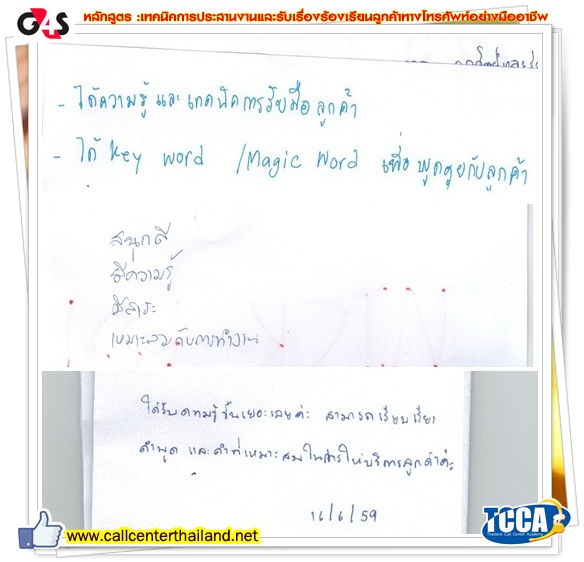 G4S
หลักสูตร :เทคนิคการประสานงานและรับเรื่องร้องเรียนลูกค้าทางโทรศัพท์อย่างมืออาชีพ
- ได้ความรู้ และ เทคนิคการรับมือ ลูกค้า
- ได้ Key word /Magic Word เพื่อ พูดคุยกับลูกค้า
สนุกดี
มีความรู้
มีสาระ
เหมาะสมกับการทำงาน
ได้รับความรู้ขึ้นเยอะเลยค่ะ สามารถเรียบเรียง
คำพูด และคำที่เหมาะสมในการให้บริการลูกค้าค่ะ
16/6/59
www.callcenterthailand.net
TCCA
Thailand Call Center Academy